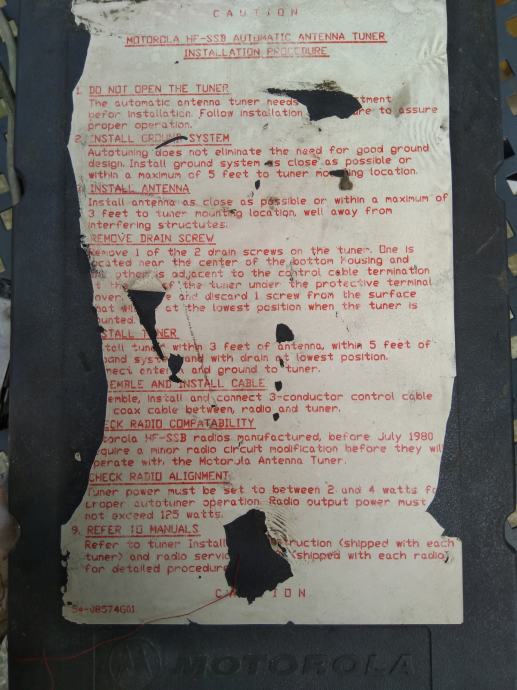 CAUTION
MOTOROLA HF-SSB AUTOMATIC ANTENNA TUNER
INSTALLATION PROCEDURE
1. DO NOT OPEN THE TUNER
The automatic antenna tuner needs tment
befor installation. Follow installation re to assure
proper operation.
2. INSTALL GROUND SYSTEM
Autotuning does not eliminate the need for good ground
design. Install ground system as close as possible or
within a maximum of 5 feet to tuner mounting location.
INSTALL ANTENNA
Install antenna as close as possible or within a maximum of
3 feet to tuner mounting location, well away from
interfering structutes.
REMOVE DRAIN SCREW
Remove 1 of the 2 drain screws on the tuner. One is
ocated near the center of the bottom housing and
other is adjacent to the control cable termination
of the tuner under the protective terminal
over. and discard 1 screw from the surface
hat at the lowest position when the tuner is
ounted.
STALL TUNER
tall tuner within 3 feet of antenna, within 5 feet of
ound system and with drain at lowest position.
nnect antenna and ground to tuner.
EMBLE AND INSTALL CABLE
emble, install and connect 3-conductor control cable
coax cable between, radio and tuner.
ECK RADIO COMPATABILITY
torola HF-SSB radios manufactured, before July 1980
equire a minor radio circuit modification before they will
perate with the Motorola Antenna Tuner.
CHECK RADIO ALIGNMENT
Tuner power must be set to between 2 and 4 watts fo
proper autotuner operation. Radio output power must
not exceed 125 watts.
9. REFER TO MANUALS
Refer to tuner Install ruction (shipped with each
tuner) and radio servic (shipped with each radio)
for detailed procedure
CAUTION
54-08574G01
MOTOROLA